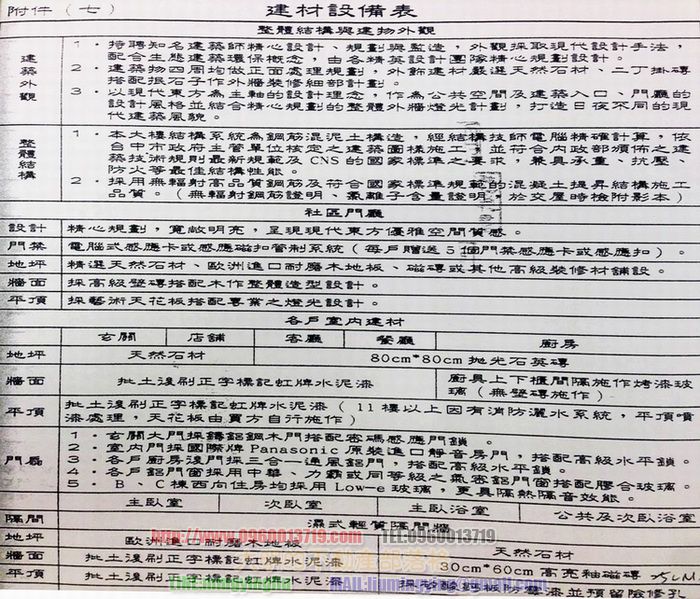 附件（七） 建材設備表
整體結構與建物外觀
建築外觀
1．特聘知名建築師精心設計、規劃與監造，外觀採取現代設計手法，
配合生態建築環保概念，由各精英設計團隊精心規劃設計。
2．建築物四周均做正面處理規劃，外飾建材嚴選天然石材、二丁掛磚
搭配抿石子作外牆裝修細部計劃。
3．以現代東方為主軸的設計理念，作為公共空間及建築入口、門廳的
設計風格並結合精心規劃的整體外牆燈光計劃，打造日夜不同的現
代建築風貌。
整體結構
1．本大樓結構系統為鋼筋混泥土構造，經結構技師電腦精確計算，依
台中市政府主管單位核定之建築圖樣施工，並符合內政部頒佈之建
築技術規則最新規範及CNS的國家標準之要求，兼具承重、抗壓、
防火等最佳結構性能。
2．採用無輻射高品質鋼筋及符合國家標準規範的混凝土提昇結構施工
品質。（無輻射鋼筋證明、氯離子含量證明，於交屋時檢附影本）
社區門廳
設計 精心規劃，寬敞明亮，呈現現代東方優雅空間質感。
門禁 電腦式感應卡或感應磁扣管制系統（每戶贈送5個門禁感應卡或感應扣）。
地坪 精選天然石材、歐洲進口耐磨木地板、磁磚或其他高級裝修材舖設。
牆面 採高級壁磚搭配木作整體造型設計。
平頂 採藝術天花板搭配專業之燈光設計。
各戶室內建材
玄關 店舖 客廳 餐廳 廚房
地坪 天然石材 80cm*80cm拋光石英磚
牆面 批土後刷正字標記虹牌水泥漆 廚具上下櫃間隔施作烤漆玻
璃（無壁磚施作）
平頂 批土後刷正字標記虹牌水泥漆（11樓以上因有消防灑水系統，平頂噴
漆處理，天花板由買方自行施作）
門窗
1．玄關大門採鑄鋁鋼木門搭配密碼感應門鎖。
2．室內門採國際牌Panasonic原裝進口靜音房門，搭配高級水平鎖。
3．各戶廚房後門採三合一通風鋁門，搭配高級水平鎖。
4．各戶鋁門窗採用中華、力霸或同等級之氣密鋁門窗搭配膠合玻璃。
5．B、C棟西向住房均採用Low-e玻璃，更具隔熱隔音效能。
主臥室 次臥室 主臥浴室 公共及次臥浴室
隔間 濕式輕質隔間牆
http://www.0960013719.com TEL:0960013719
地坪 歐洲進口耐磨木地板 天然石材
牆面 批土後刷正字標記虹牌水泥漆 30cm*60cm高亮釉磁磚
平頂 批土後刷正字標記虹牌水泥漆
漆並預留險修孔